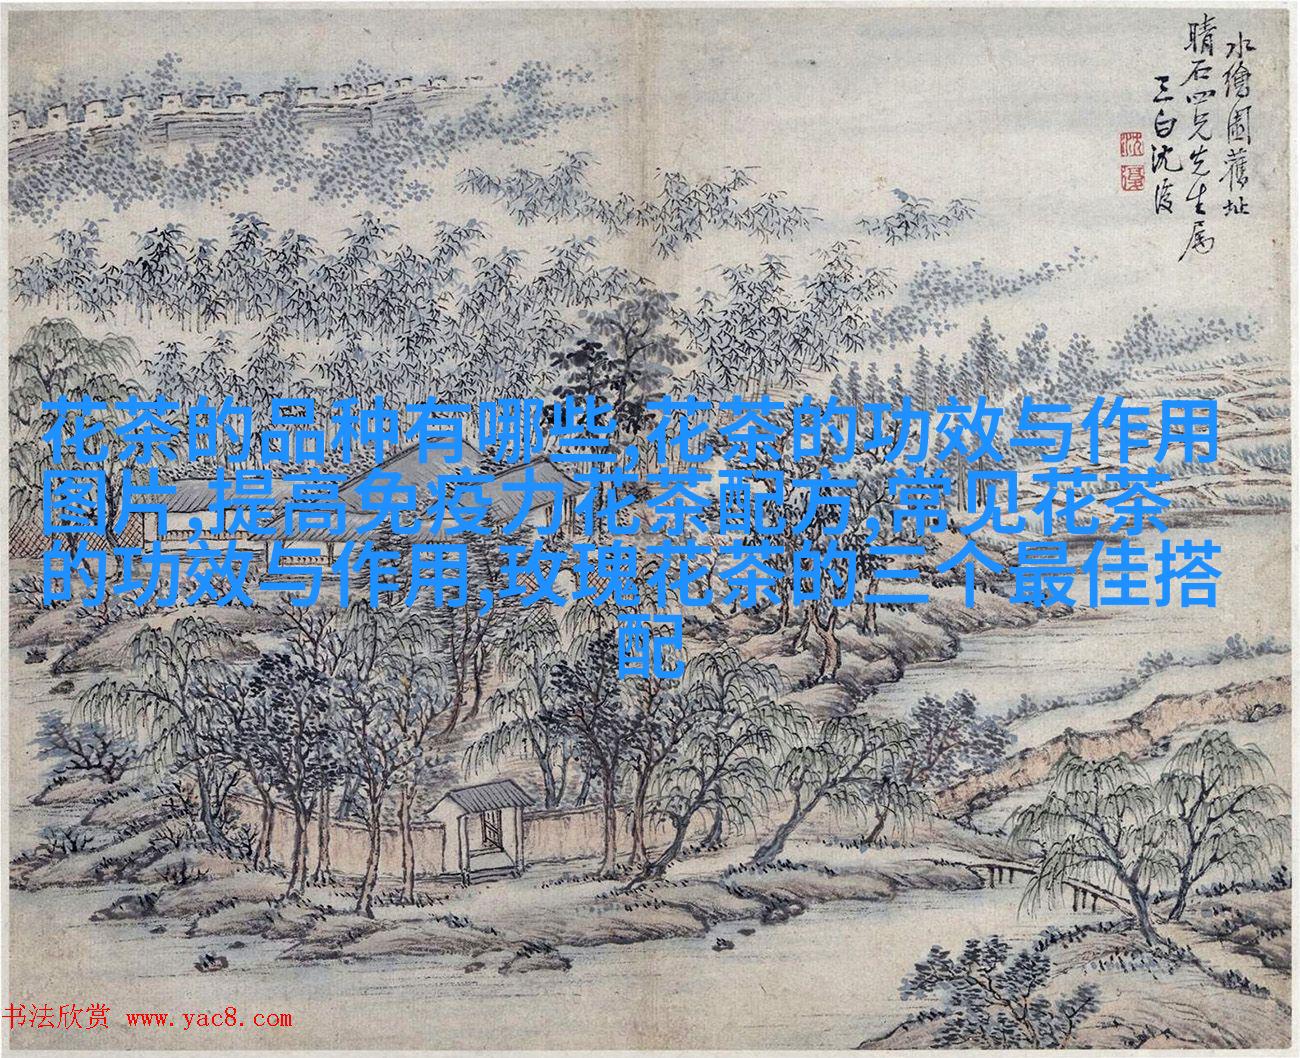 水繪園舊址
晴石四兄先生属
三白沈復
沈
復
花茶的品种有哪些,花茶的功效与作用
图片,提高免疫力花茶配方,常见花茶
的功效与作用,玫瑰花茶的三个最佳搭
配
书法欣赏 www.yac8.com